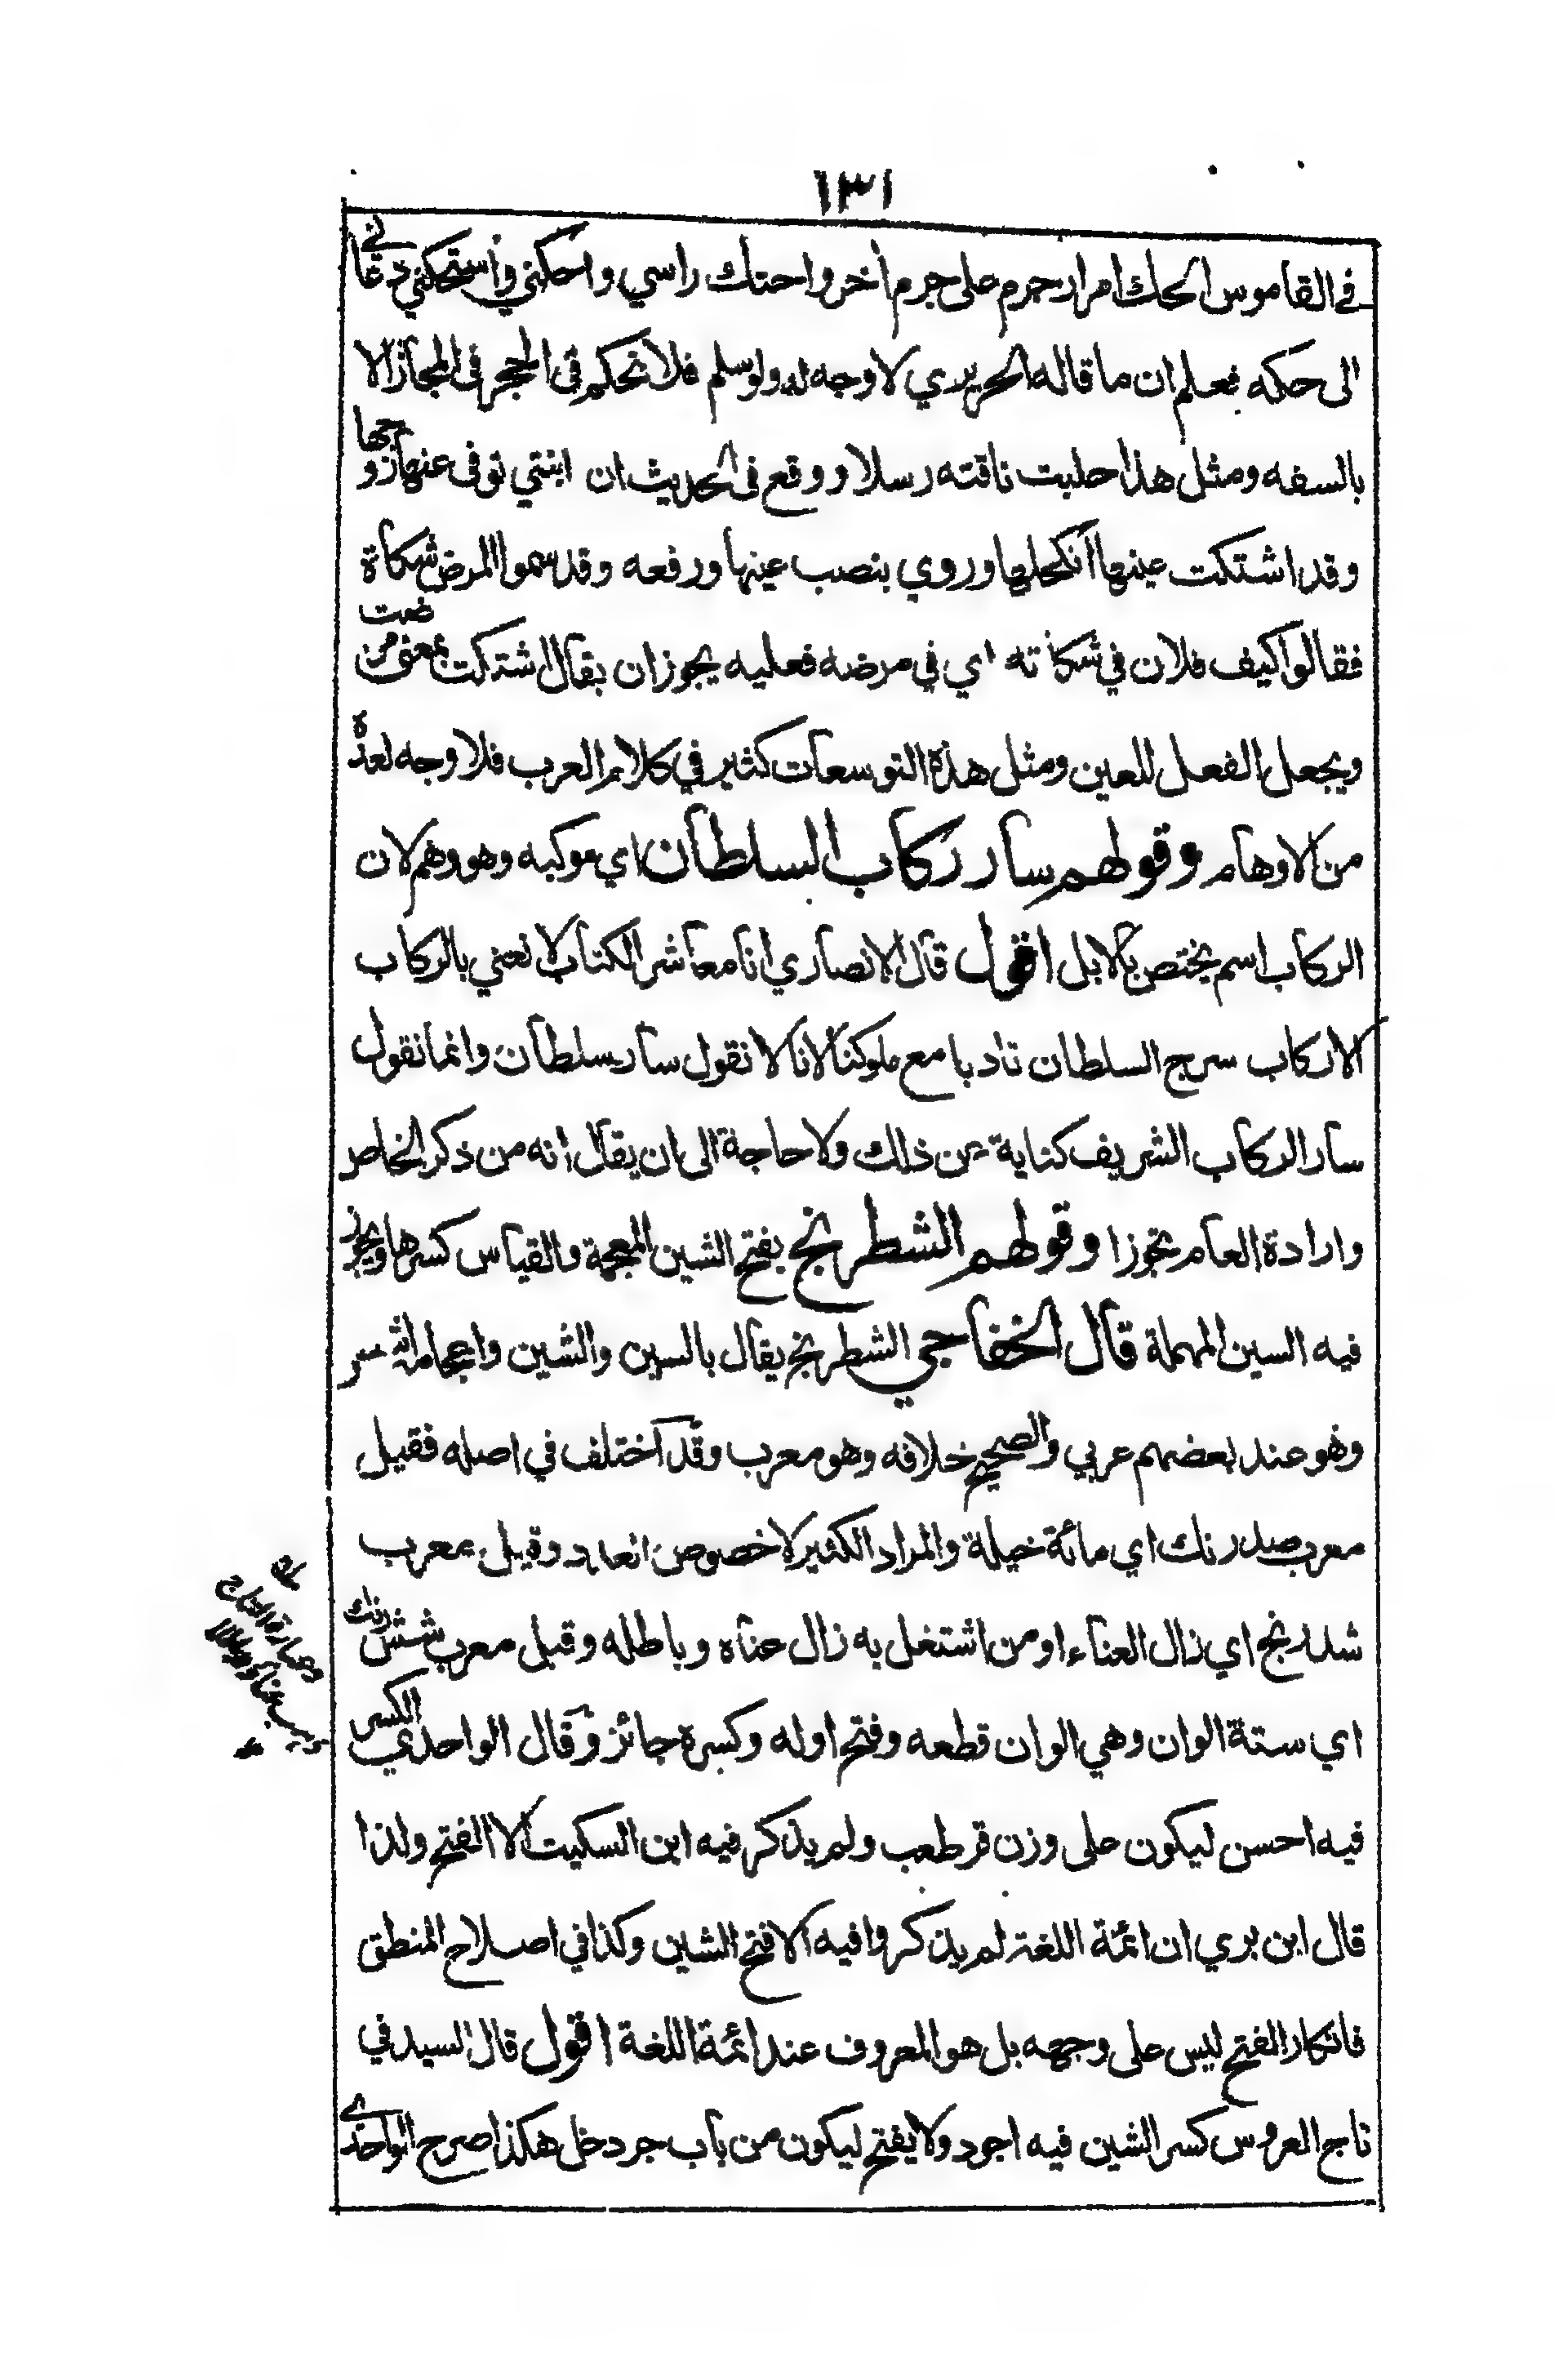 ١٣١
في القاموس الحك امرار جرم على جرم أخر واحتك راسي واحكني واستحكني دعاني
الى حكه فعلم ان ما قاله الحريري لا وجه له ولو سلم فلا تحكم في الحجر في المجاز الا
بالسفه ومثل هذا حلبت ناقته رسلا ووقع في الحديث ان ابنتي توفى عنها زوجها
وقد اشتكت عينها انكحلها وروي بنصب عينها ورفعه وقد سموا المرض شكاة
فقالوا كيف فلان في شكاته اي في مرضه فعليه يجوز ان يقال اشتكت بمعنى مرضت
ويجعل الفعل للعين ومثل هذه التوسعات كثير في كلام العرب فلا وجه لعده
من الاوهام وقولهم سار ركاب السلطان اي موكبه وهو وهم لان
الركاب اسم يختص بالابل اقول قال الانصاري انا معاشر الكتاب لا نعني بالركاب
الا ركاب سرج السلطان تادبا مع ملوكنا لانا لا نقول سار سلطان وانما نقول
سار الركاب الشريف كناية عن ذلك ولا حاجة الى ان يقال انه من ذكر الخاص
وارادة العام تجوزا وقولهم الشطرنج بفتح الشين المعجمة والقياس كسرها ويجوز
فيه السين المهملة قال الخفاجي الشطرنج يقال بالسين والشين واعجامه اشهر
وهو عند بعضهم عربي والصحيح خلافه وهو معرب وقد اختلف في اصله فقيل
معرب صدرنك اي مائة حيلة والمراد الكثير لا خصوص العدد وقيل معرب
شدرنج اي زال العناء او من اشتغل به زال عناه وباطله وقيل معرب شش رنك
اي ستة الوان وهي الوان قطعه وفتح اوله وكسره جائز وقال الواحدي الكسر
فيه احسن ليكون على وزن قرطعب ولم يذكر فيه ابن السكيت الا الفتح ولذا
قال ابن بري ان ائمة اللغة لم يذكروا فيه الا فتح الشين وكذا في اصلاح المنطق
فانكار الفتح ليس على وجهه بل هو المعروف عند ائمة اللغة اقول قال السيد في
تاج العروس كسر الشين فيه اجود ولا يفتح ليكون من باب جردحل هكذا صرح الواحدي
وعبارة التاج